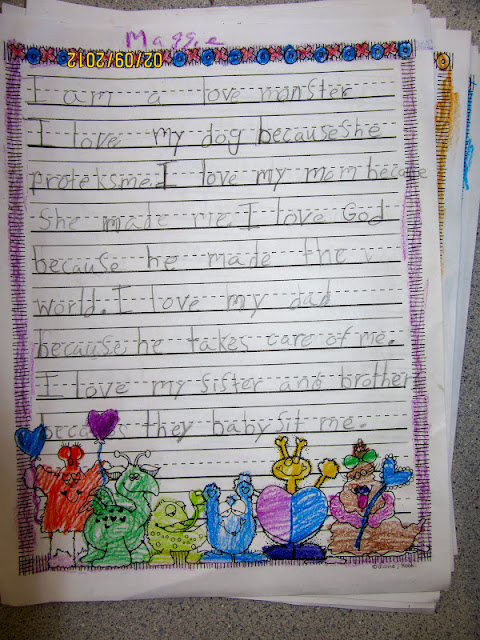 Maggie
02/09/2012
I am a love monster
I love my dog because she
proteksme. I love my mom because
She made me. I love God
because he made the
world. I love my dad
because he takes care of me.
I love my sister and brother
becaues they babysit me.